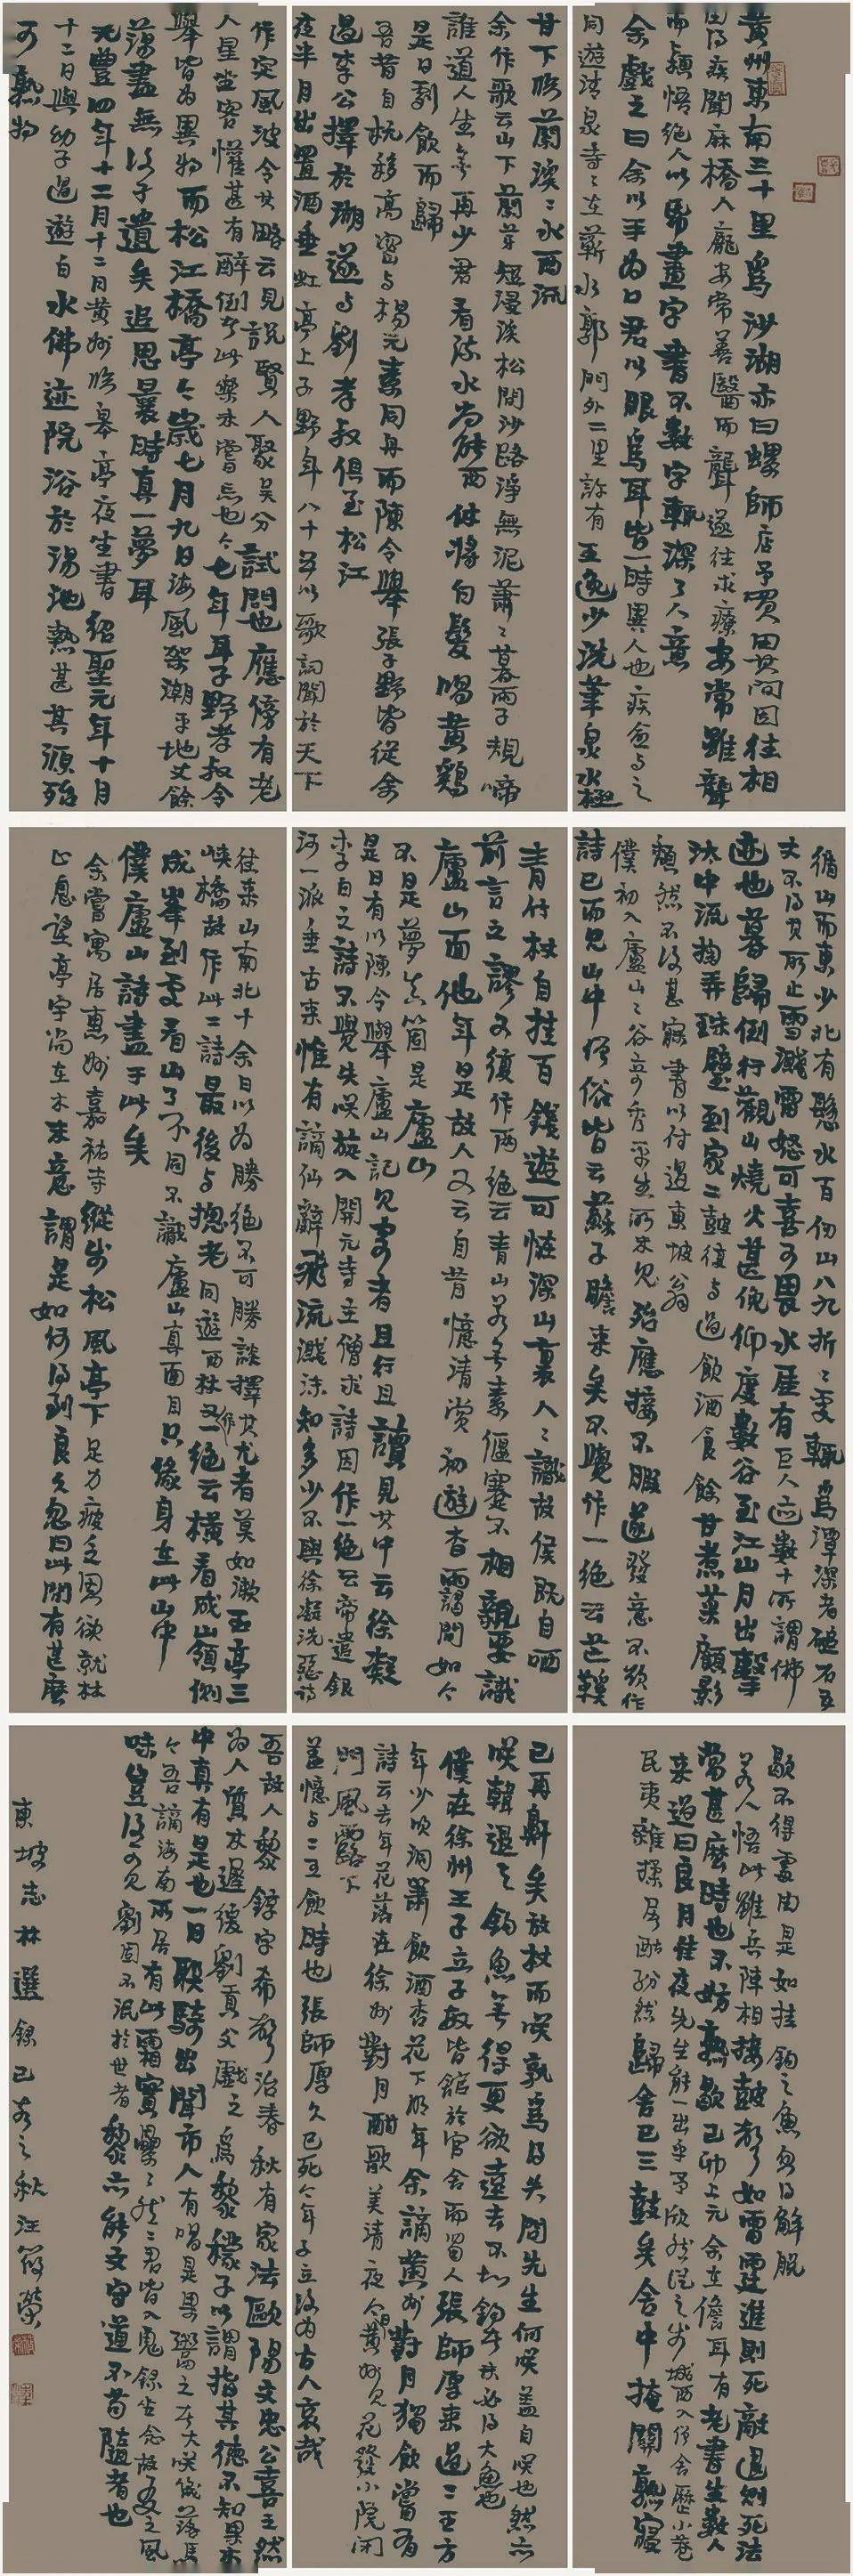 黄州東南三十里為沙湖亦曰螺師店予買田其間因往相
田得疾聞麻橋人龐安常善醫而聾遂往求療安常雖聾
而穎悟絕人以紙畫字書不數字輒深了人意
余戲之曰余以手為口君以眼為耳皆一時異人也疾愈与之
同遊清泉寺寺在蘄水郭門外二里許有王逸少洗筆泉水極
甘下臨蘭溪溪水西流
余作歌云山下蘭芽短浸溪松間沙路淨無泥蕭蕭暮雨子規啼
誰道人生無再少君看流水尚能西休將白髮唱黄鷄
是日劇飲而歸
吾昔自杭移高密与楊元素同舟而陳令舉張子野皆從余
過李公擇於湖遂与劉孝叔俱至松江
夜半月出置酒垂虹亭上子野年八十五以歌詞聞於天下
作定風波令其略云見説賢人聚吴分試問也應傍有老
人星坐客懽甚有醉倒者此樂未嘗忘也今七年耳子野孝叔令
舉皆為異物而松江橋亭今歲七月九日海風架潮平地丈餘
蕩盡無復孑遺矣追思曩時真一夢耳
元豐四年十二月十二日黄州臨皋亭夜坐書紹聖元年十月
十二日與幼子過遊白水佛迹院浴於湯池熱甚其源殆
可熟物
循山而東少北有懸水百仞山八九折折處輒為潭深者磓石五
丈不得其所止雪濺雷怒可喜可畏水厓有巨人迹數十所謂佛
迹也暮歸倒行觀山燒火甚俛仰度數谷至江山月出擊
汰中流掬弄珠璧到家二鼓復与過飲酒食餘甘煮菜顧影
頹然不復甚寐書以付過東坡翁
僕初入廬山山谷奇秀平生所未見殆應接不暇遂發意不欲作
詩已而見山中僧俗皆云蘇子瞻来矣不覺作一絕云芒鞋
青竹杖自挂百錢遊可怪深山裏人人識故侯既自哂
前言之謬又復作兩絕云青山若無素偃蹇不相親要識
廬山面他年是故人又云自昔憶清賞初遊杳靄間如今
不是夢真箇是廬山
是日有以陳令舉廬山記見寄者且行且讀見其中云徐凝
李白之詩不覺失笑旋入開元寺主僧求詩因作一絕云帝遣銀
河一派垂古来惟有謫仙辭飛流濺沫知多少不與徐凝洗惡詩
往来山南北十余日以為勝絕不可勝談擇其尤者莫如漱玉亭三
峡橋故作此二詩最後与摠老同遊西林又作一絕云橫看成嶺側
成峯到處看山了不同不識廬山真面目只緣身在此山中
僕廬山詩盡于此矣
余嘗寓居惠州嘉祐寺縱步松風亭下足力疲乏思欲就林
止息望亭宇尚在木末意謂是如何得到良久忽曰此間有甚麼
歇不得處由是如挂鉤之魚忽得解脱
若人悟此雖兵陣相接皷聲如雷霆進則死敵退則死法
當甚麼時也不妨熟歇己卯上元余在儋耳有老書生數人
来過曰良月佳夜先生能一出乎予欣然從之步城西入僧舍歷小巷
民夷雜揉屠酤紛然歸舍已三鼓矣舍中掩關熟寢
已再鼾矣放杖而笑孰為得失問先生何笑蓋自笑也然亦
笑韓退之釣魚無得更欲遠去不知釣者未必得大魚也
僕在徐州王子立子敏皆館於官舍而蜀人張師厚来過二王方
年少吹洞簫飲酒杏花下明年余謫黄州對月獨飲嘗有
詩云去年花落在徐州對月酣歌美清夜今日黄州見花發小院閉
門風露下
蓋憶与二王飲時也張師厚久已死今年子立復為古人哀哉
吾故人黎錞字希聲治春秋有家法歐陽文忠公喜之然
為人質木遲緩劉貢父戲之為黎檬子以謂指其德不知果木
中真有是也一日聯騎出聞市人有唱是果鬻之者大笑幾落馬
今吾謫海南所居有此霜實纍纍然二君皆入鬼録坐念故友之風
味豈復可見劉固不泯於世者黎亦能文守道不苟隨者也
東坡志林選録己亥之秋汪筱榮